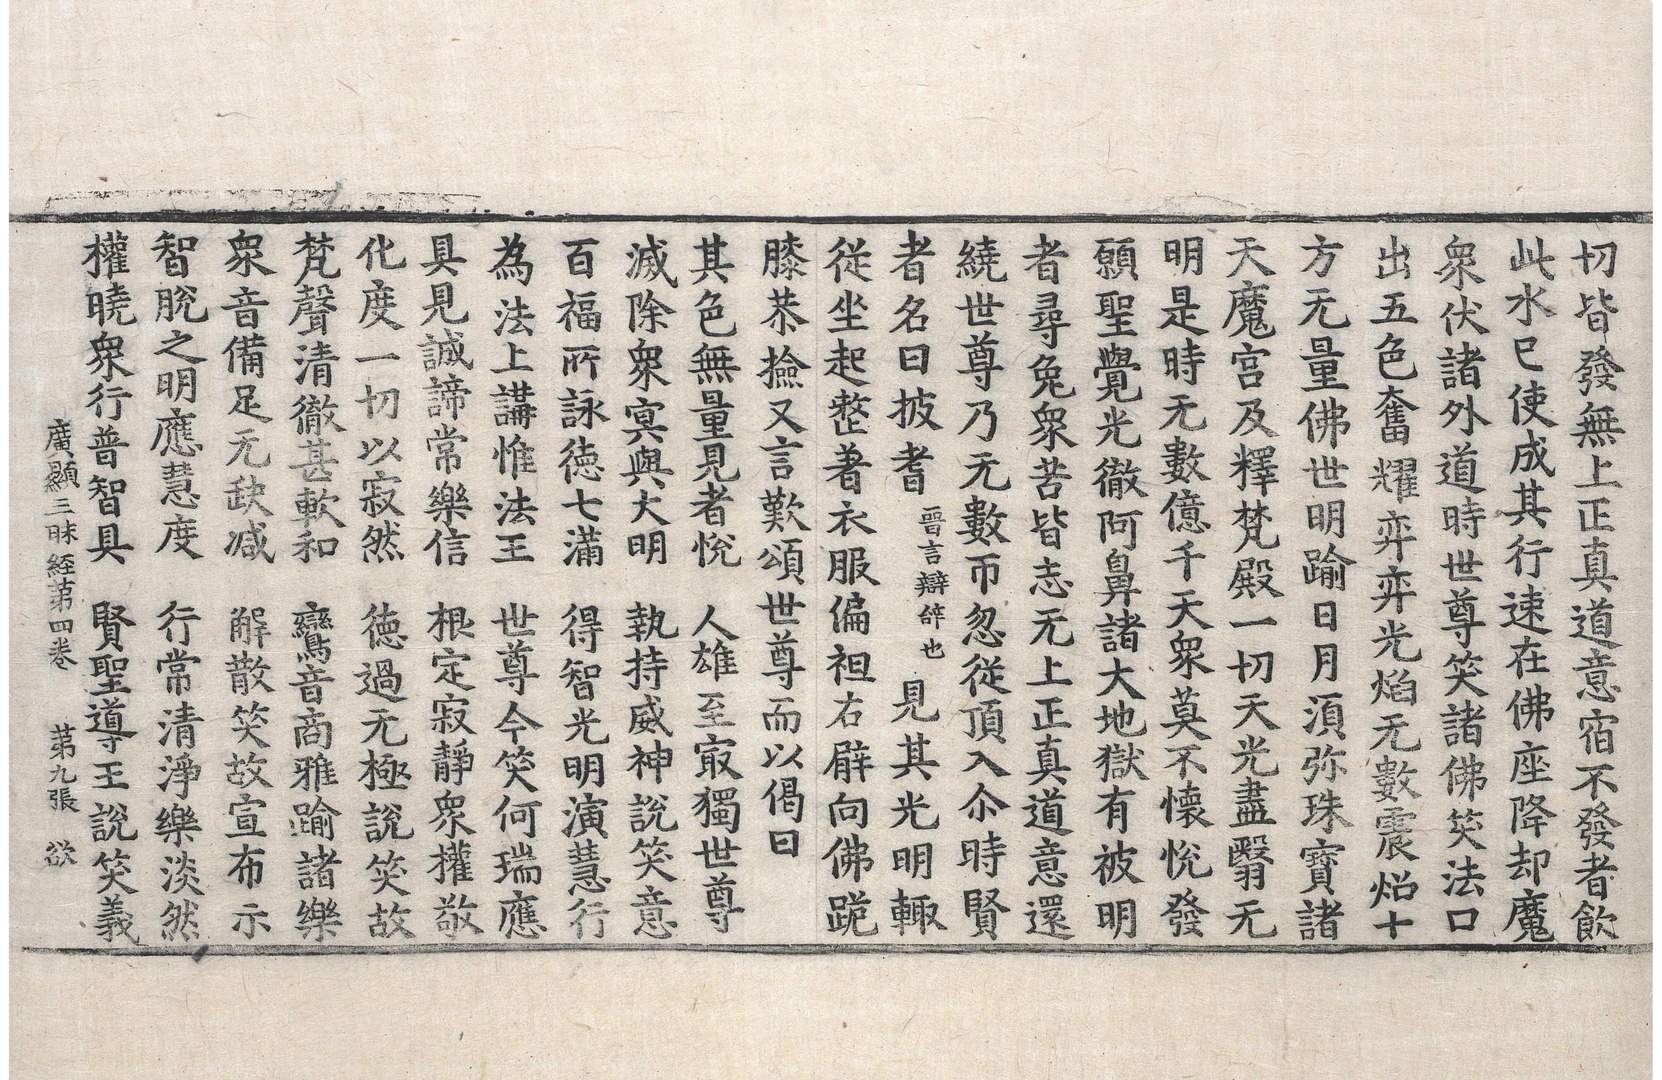 切皆發無上正真道意宿不發者飲
此水已使成其行速在佛座降却魔
衆伏諸外道時世尊笑諸佛笑法口
出五色奮耀弈弈光焰无數震炤十
方无量佛世明踰日月湏弥珠寶諸
天魔宮及釋梵殿一切天光盡翳无
明是時无數億千天衆莫不懷悅發
願聖覺光徹阿鼻諸大地獄有被明
者尋免衆苦皆志无上正真道意還
繞世尊乃无數帀忽從頂入尒時賢
者名曰披耆 晉言辯辝也 見其光明輙
從坐起整著衣服偏袒右臂向佛跪
膝恭撿叉言歎頌世尊而以偈曰
其色無量見者悅 人雄至㝡獨世尊
滅除衆冥與大明 執持威神說笑意
百福所詠德七滿 得智光明演慧行
為法上講惟法王 世尊今笑何瑞應
具見誠諦常樂信 根定寂靜衆權敬
化度一切以寂然 德過无極說笑故
梵聲清徹甚軟和 鸞音商雅踰諸樂
衆音備足无缺減 解散笑故宣布示
智脫之明應慧度 行常清淨樂淡然
權曉衆行普智具 賢聖導王說笑義
廣顯三昧経苐四卷 苐九張 欲